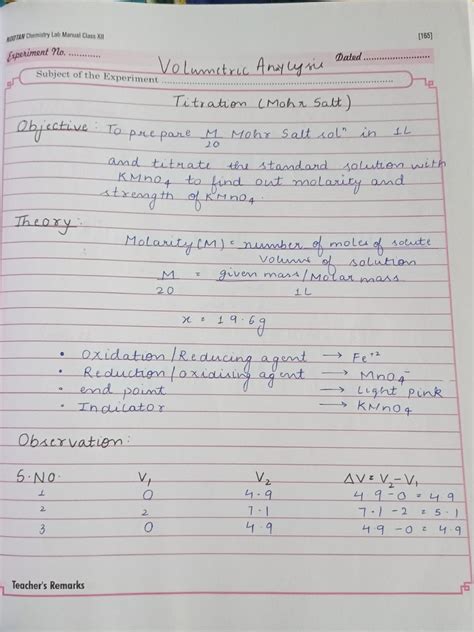 NOOTAN Chemistry Lab Manual Class XII [165]
Experiment No. ............ Dated ........................
Volumetric Anylysis
Subject of the Experiment ........................
Titration (Mohr Salt)
Objective : To prepare M/20 Mohr Salt solⁿ in 1L
and titrate the standard solution with
KMnO₄ to find out molarity and
strength of KMnO₄.
Theory :
Molarity(M) = number of moles of solute
Volume of solution
M = given mass/Molar mass
20 1L
x = 19.6g
• Oxidation/Reducing agent → Fe⁺²
• Reduction/oxidising agent → MnO₄⁻
• end point → Light pink
• Indicator → KMnO₄
Observation :
S.NO. V₁ V₂ ΔV = V₂-V₁
1 0 4.9 4.9-0 = 4.9
2 2 7.1 7.1-2 = 5.1
3 0 4.9 4.9-0 = 4.9
Teacher's Remarks